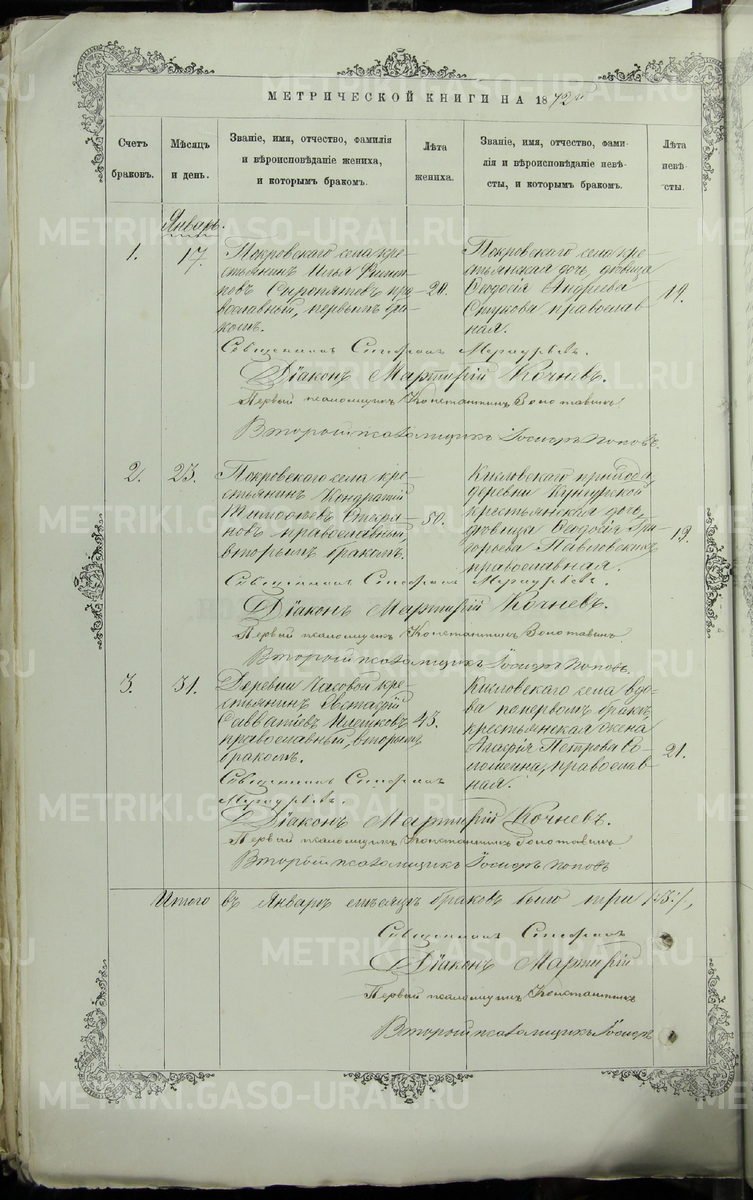 МЕТРИЧЕСКОЙ КНИГИ НА 1872 г.
Счетъ браковъ.
Мѣсяцъ и день.
Званіе, имя, отчество, фамилія
и вѣроисповѣданіе жениха,
и которымъ бракомъ.
Лѣта жениха.
Званіе, имя, отчество, фами-
лія и вѣроисповѣданіе невѣ-
сты, и которымъ бракомъ.
Лѣта невѣ-
сты.
Январь.
1.
17.
Покровскаго села кре-
стьянинъ Илья Филип-
повъ пра-
вославный, первымъ бра-
комъ.
20.
Покровскаго села кре-
стьянская дочь, дѣвица
Ѳеодосія Андреева
православ-
ная.
19.
Священникъ Стефанъ
Діаконъ Мартирій Кочневъ.
Первый псаломщикъ Константинъ Золотавинъ
Второй псаломщикъ Іосифъ Поповъ.
2.
23.
Покровскаго села кре-
стьянинъ Кондратій
Тимофеевъ
православный,
вторымъ бракомъ.
30.
Кисловскаго прихода,
деревни
крестьянская дочь,
дѣвица Ѳеодосія Гри-
горьева
православная.
19.
Священникъ Стефанъ
Діаконъ Мартирій Кочневъ.
Первый псаломщикъ Константинъ Золотавинъ
Второй псаломщикъ Іосифъ Поповъ.
3.
31.
Деревни Часовой кре-
стьянинъ Евстафій
Савватіевъ
православный, вторымъ
бракомъ.
43.
Кисловскаго села вдо-
ва по первомъ бракѣ,
крестьянская жена
Агафія Петрова
православ-
ная.
21.
Священникъ Стефанъ
Діаконъ Мартирій Кочневъ.
Первый псаломщикъ Константинъ Золотавинъ
Второй псаломщикъ Іосифъ Поповъ
Итого въ Январѣ мѣсяцѣ браковъ было три /:3:/,
Священникъ Стефанъ
Діаконъ Мартирій
Первый псаломщикъ Константинъ
Второй псаломщикъ Іосифъ
METRIKI.GASO-URAL.RU